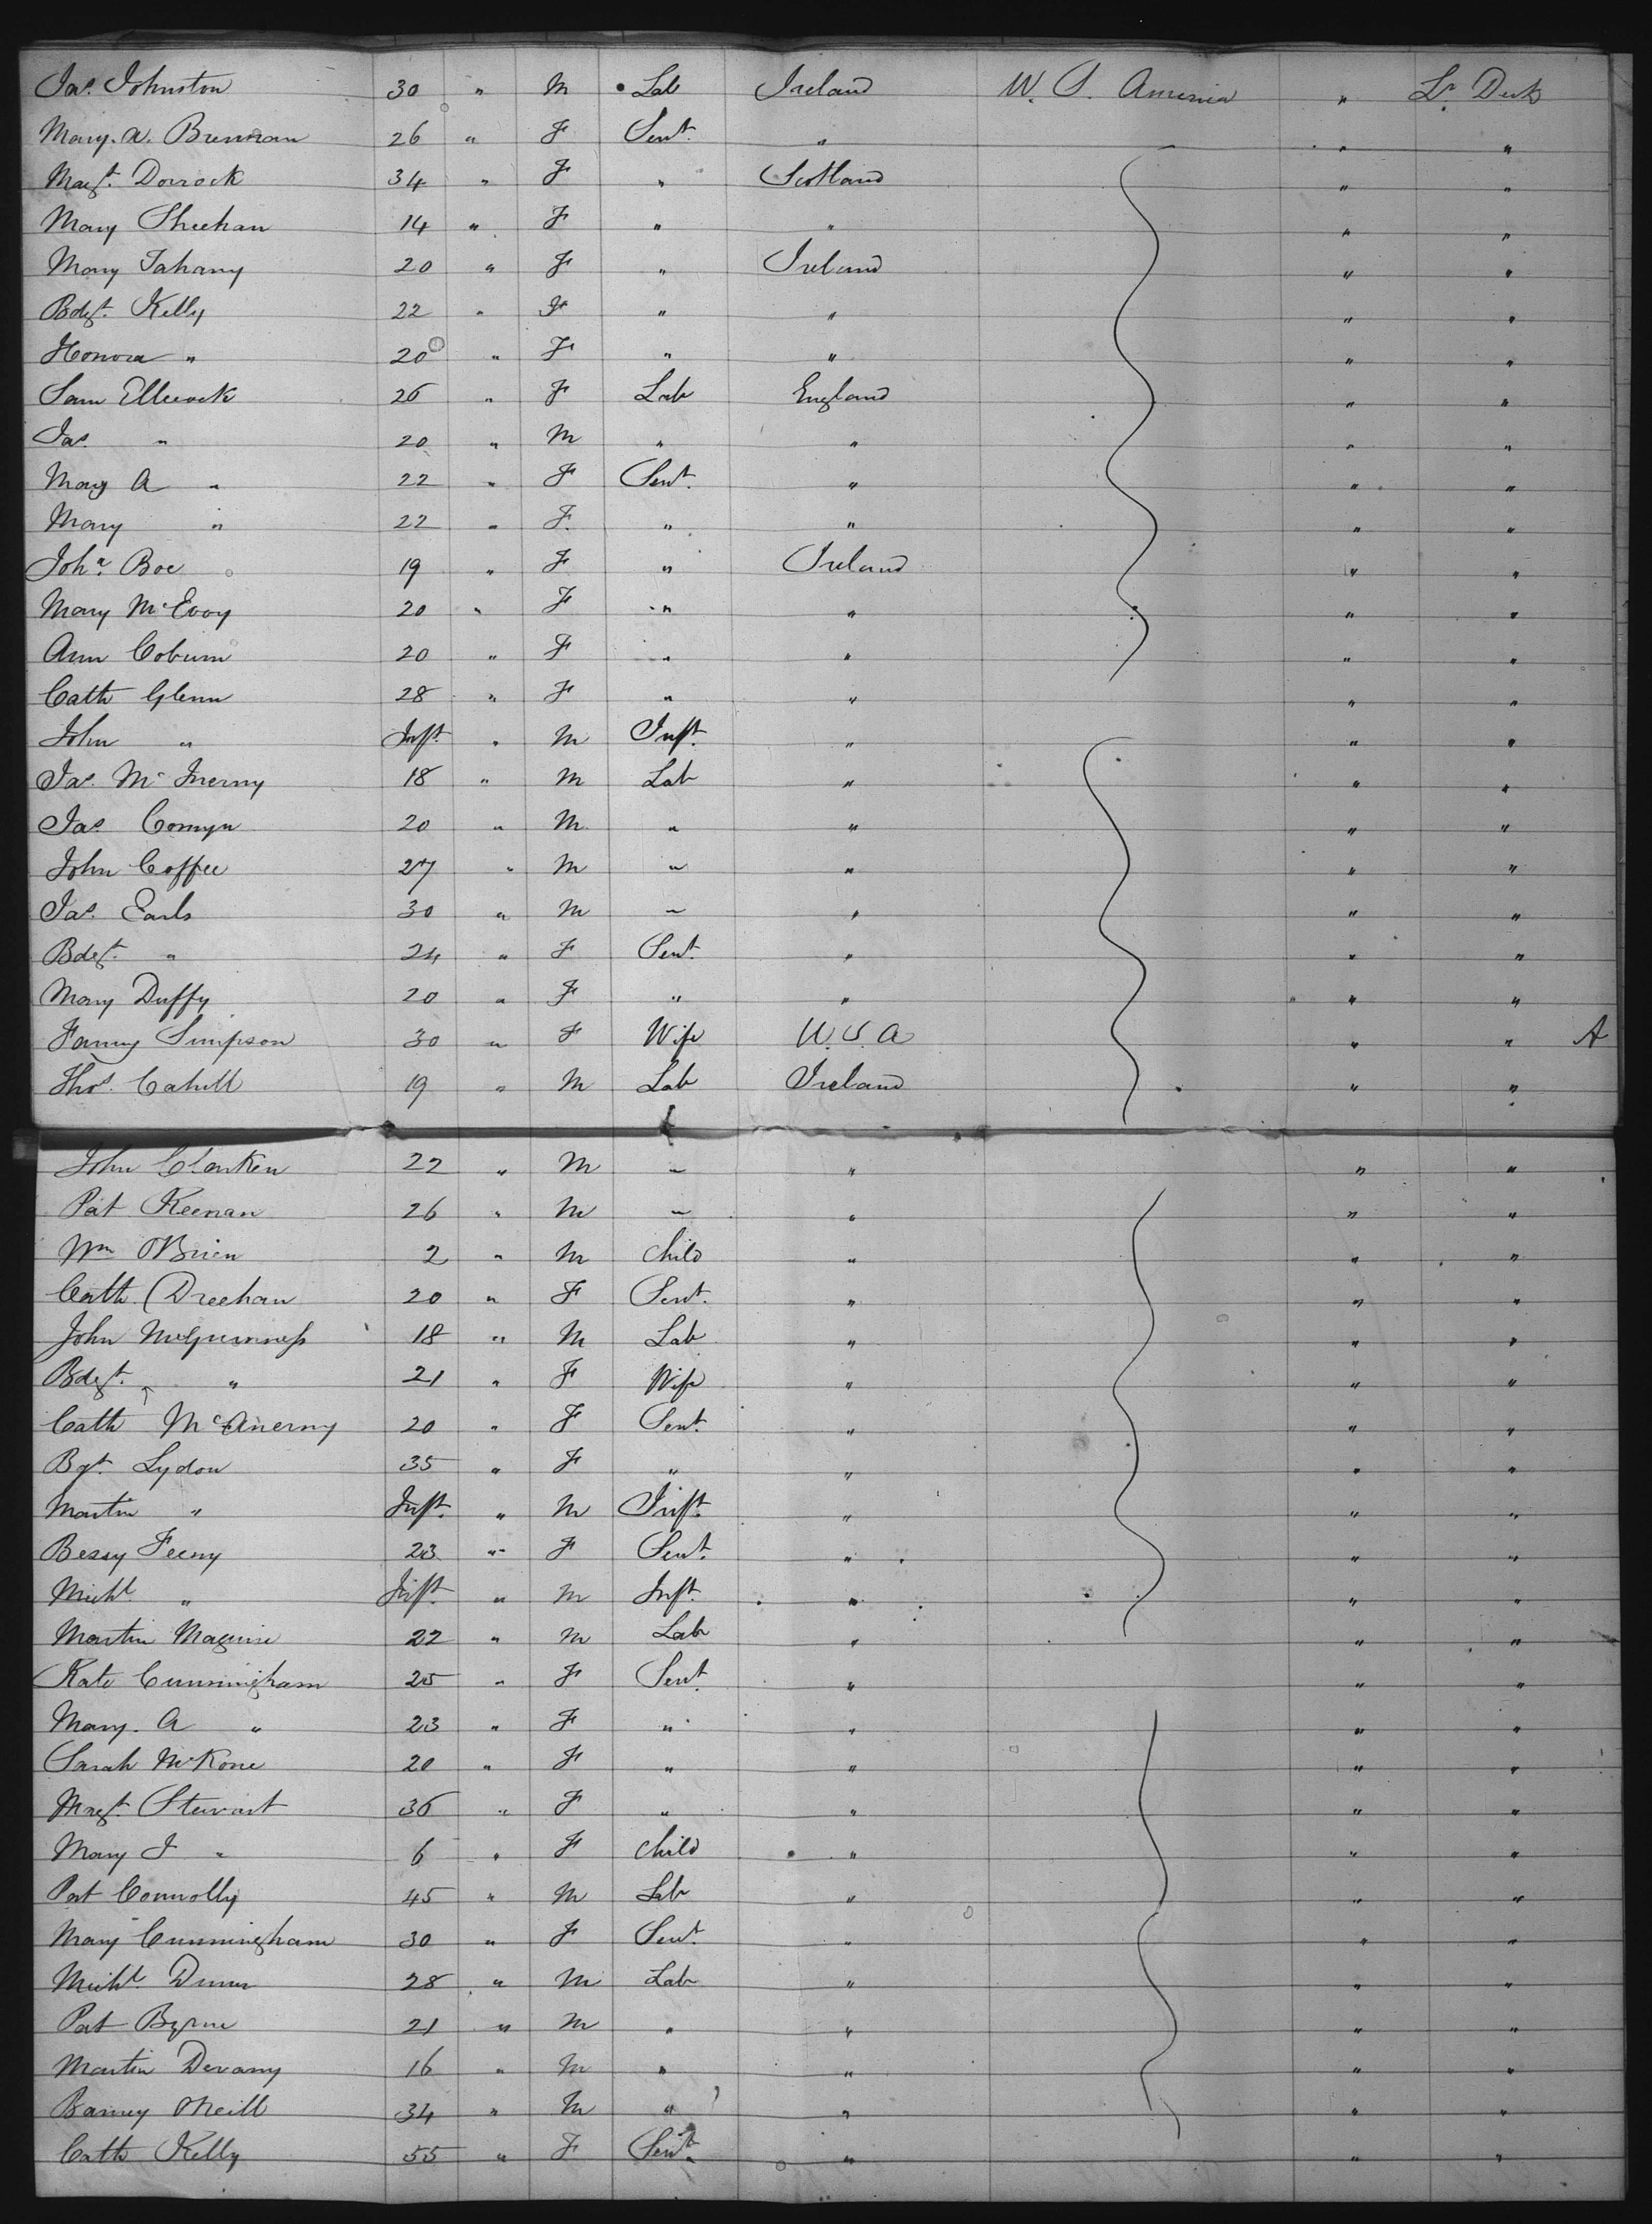 Jas. Johnston 30 " M Lab Ireland U. S. America " Lr. Deck
Mary. A. Brennan 26 " F Servt. " " "
Margt. Dorrock 34 " F " Scotland " "
Mary Sheehan 14 " F " " " "
Mary Tahany 20 " F " Ireland " "
Bdgt. Kelly 22 " F " " " "
Honora " 20 " F " " " "
Sam Ellcock 26 " F Lab England " "
Jas. " 20 " M " " " "
Mary A " 22 " F Servt. " " "
Mary " 22 " F. " " " "
Joha. Boe 19 " F " Ireland " "
Mary McEvoy 20 " F " " " "
Ann Coburn 20 " F " " " "
Cath Glenn 28 " F " " " "
John " Inft. " M Inft. " " "
Jas. Mc Inerny 18 " M Lab " " "
Jas. Comyn 20 " M " " " "
John Coffee 27 " M " " " "
Jas. Earls 30 " M " " " "
Bdgt. " 24 " F Servt. " " "
Mary Duffy 20 " F " " " "
Fanny Simpson 30 " F Wife U. S. A " " A
Thos. Cahill 19 " M Lab Ireland " "
John Clarken 22 " M " " " "
Pat Keenan 26 " M " " " "
Wm OBrien 2 " M Child " " "
Cath. Dreehan 20 " F Servt. " " "
John McGuinness 18 " M Lab " " "
Bdgt. " 21 " F Wife " " "
Cath McAnerny 20 " F Servt. " " "
Bgt. Lydon 35 " F " " " "
Martin " Inft. " M Inft. " " "
Bessy Feeny 23 " F Servt. " " "
Michl. " Inft. " M Inft. " " "
Martin Maguire 22 " M Lab " " "
Kate Cunningham 25 " F Servt " " "
Mary. A " 23 " F " " " "
Sarah McKone 20 " F " " " "
Margt. Stewart 36 " F " " " "
Mary J " 6 " F Child " " "
Pat Connolly 45 " M Lab " " "
Mary Cunningham 30 " F Servt. " " "
Michl. Dunn 28 " M Lab " " "
Pat Byrne 21 " M " " " "
Martin Devany 16 " M " " " "
Barney ONeill 34 " M " " " "
Cath Kelly 55 " F Servt. " " "